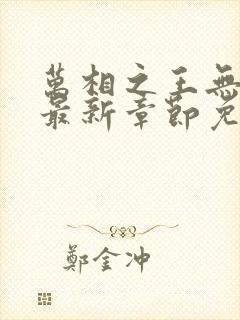 萬相之王無
最新章節免
鄭金冲